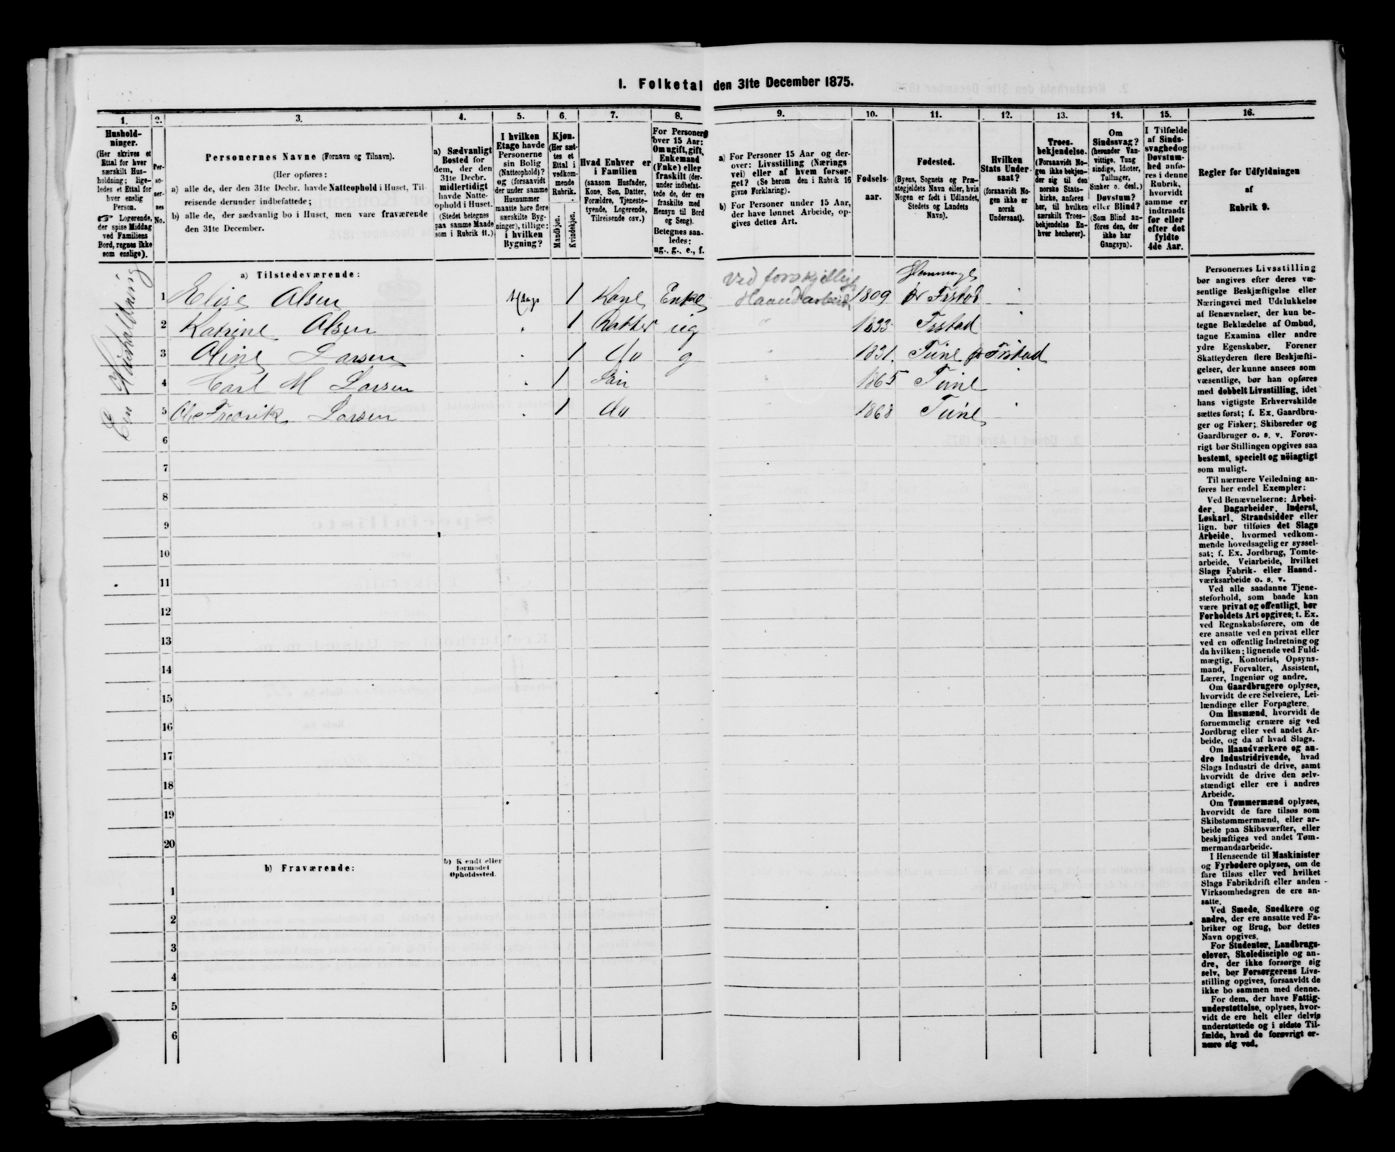 I. Folketal den 31te December 1875.
1. 2. 3. 4. 5. 6. 7. 8. 9. 10. 11. 12. 13. 14. 15. 16.
Husholdninger.
(Her skrives et Ettal for hver særskilt Husholdning; ligeledes et Ettal for hver enslig Person.
☞ Logerende, der spise Middag ved Familiens Bord, regnes ikke som enslige).
Personernes No.
Personernes Navne (Fornavn og Tilnavn).
(Her opføres:
a) alle de, der den 31te Decbr. havde Natteophold i Huset, Tilreisende derunder indbefattede;
b) alle de, der sædvanlig bo i Huset, men vare fraværende den 31te December.
a) Sædvanligt Bosted for dem, der den 31te Decbr. midlertidigt havde Natteophold i Huset.
(Stedet betegnes paa samme Maade som i Rubrik 11.)
I hvilken Etage havde Personerne sin Bolig (Natteophold)? og (forsaavidt der under samme Husnummer maatte høre flere særskilte Bygninger), tillige: i hvilken Bygning?
Kjøn.
(Her sættes et Ettal i vedkommende Rubrik.
Mandkjøn.
Kvindekjøn.
Hvad Enhver er i Familien
(saasom Husfader, Kone, Søn, Datter, Forældre, Tjenestetyende, Logerende, Tilreisende osv.)
For Personer over 15 Aar: Om ugift, gift, Enkemand (Enke) eller fraskilt (derunder indbefattede de, der ere fraskilte med Hensyn til Bord og Seng).
Betegnes saaledes: ug., g., e., f.
a) For Personer 15 Aar og derover: Livsstilling (Næringsvei) eller af hvem forsørget? (Se herom den i Rubrik 16 givne Forklaring).
b) For Personer under 15 Aar, der have lønnet Arbeide, opgives dettes Art.
Fødselsaar.
Fødested.
(Byens, Sognets og Præstegjeldets Navn eller, hvis Nogen er født i Udlandet, Stedets og Landets Navn).
Hvilken Stats Undersaat?
(forsaavidt Nogen ikke er norsk Undersaat).
Troesbekjendelse.
(Forsaavidt Nogen ikke bekjender sig til den norske Statskirke, anføres her, til hvilken særskilt Troesbekjendelse Enhver henhører).
Om Sindssvag? (herunder Vanvittige, Tungsindige, Idioter, Tullinger, Sinker o. desl.) Døvstum? eller Blind? (Som Blind anføres den, der ikke har Gangsyn).
I Tilfælde af Sindssvaghed og Døvstumhed anføres i denne Rubrik, hvorvidt samme er indtraadt før eller efter det fyldte 4de Aar.
Regler for Udfyldningen af Rubrik 9.
a) Tilstedeværende:
En Husholdning
1 Elise Olsen 1 Kone Enke Ved forskjellig Haandarbeid 1809
2 Katrine Olsen 1 Datter ug 1833 Frstad
3 Oline Larsen 1 do g 1831 Tune Frstad
4 Carl M Larsen 1 Søn 1865 Tune
5 Ole Fredrik Larsen 1 do 1868 Tune
6
7
8
9
10
11
12
13
14
15
16
17
18
19
20
b) Fraværende:
b) Kjendt eller formodet Opholdssted.
1
2
3
4
5
6
Personernes Livsstilling
bør angives efter deres væsentlige Beskjæftigelse eller
Næringsvei med Udelukkelse
af Benævnelser, der kun betegne Beklædelse af Ombud,
tagne Examina eller andre
ydre Egenskaber. Forener
Skatteyderen flere Beskjæftigelser, der kunne ansees som
væsentlige, bør han opføres
med dobbelt Livsstilling, idet
hans vigtigste Erhvervskilde
sættes først; f. Ex. Gaardbruger og Fisker; Skibsreder og
Gaardbruger o. s. v. Forøvrigt bør Stillingen opgives saa
bestemt, specielt og nøiagtigt
som muligt.
Til nærmere Veiledning anføres her endel Exempler:
Ved Benævnelserne: Arbeider, Dagarbeider, Inderst,
Løskarl, Strandsidder eller
lign. bør tilføies det Slags
Arbeide, hvormed vedkommende hovedsagelig er sysselsat; f. Ex. Jordbrug, Tomtearbeide, Veiarbeide, hvilket
Slags Fabrik- eller Haandværksarbeide o. s. v.
Ved alle saadanne Tjenesteforhold, som baade kan
være privat og offentligt, bør
Forholdets Art opgives; t. Ex.
ved Regnskabsførere, om de
ere ansatte ved en privat eller
ved en offentlig Indretning og
da hvilken; lignende ved Fuldmægtig, Kontorist, Opsynsmand, Forvalter, Assistent,
Lærer, Ingeniør og andre.
Om Gaardbrugere oplyses,
hvorvidt de ere Selveiere, Leilændinge eller Forpagtere.
Om Husmænd, hvorvidt de
fornemmelig ernære sig ved
Jordbrug eller ved andet Arbeide, og da af hvad Slags.
Om Haandværkere og andre Industridrivende, hvad
Slags Industri de drive, samt
hvorvidt de drive den selvstændigt eller ere i andres
Arbeide.
Om Tømmermænd oplyses,
hvorvidt de fare tilsøs som
Skibstømmermænd, eller arbeide paa Skibsværfter, eller
beskjæftiges ved andet Tømmermandsarbeide.
I Henseende til Maskinister
og Fyrbødere oplyses, om de
fare tilsøs eller ved hvilket
Slags Fabrikdrift eller anden
Virksomhedsgren de ere ansatte.
Ved Smede, Snedkere og
andre, der ere ansatte ved Fabriker og Brug, bør dettes
Navn opgives.
For Studenter, Landbrugselever, Skoledisciple og andre, der ikke forsørge sig
selv, bør Forsørgerens Livsstilling opgives, forsaavidt de
ikke bo sammen med denne.
For dem, der have Fattigunderstøttelse, oplyses, hvorvidt de ere helt eller delvis
understøttede og i sidste Tilfælde, hvad de forøvrigt ernære sig ved.